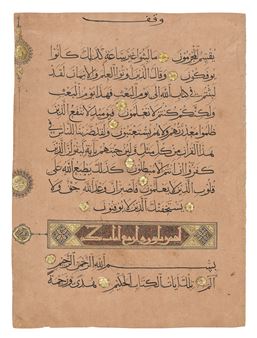 وقف
يقسم المجرمون ما لبثوا غير ساعة كذلك كانوا
يؤفكون وقال الذين اوتوا العلم والايمان لقد
لبثتم في كتاب الله الى يوم البعث فهذا يوم البعث
ولكنكم كنتم لا تعلمون فيومئذ لا ينفع الذين
ظلموا معذرتهم ولا هم يستعتبون ولقد ضربنا للناس في
هذا القران من كل مثل ولئن جئتهم باية ليقولن الذين
كفروا ان انتم الا مبطلون كذلك يطبع الله على
قلوب الذين لا يعلمون فاصبر ان وعد الله حق ولا
يستخفنك الذين لا يوقنون
بسم الله الرحمن الرحيم
الم تلك ايات الكتاب الحكيم هدى ورحمة